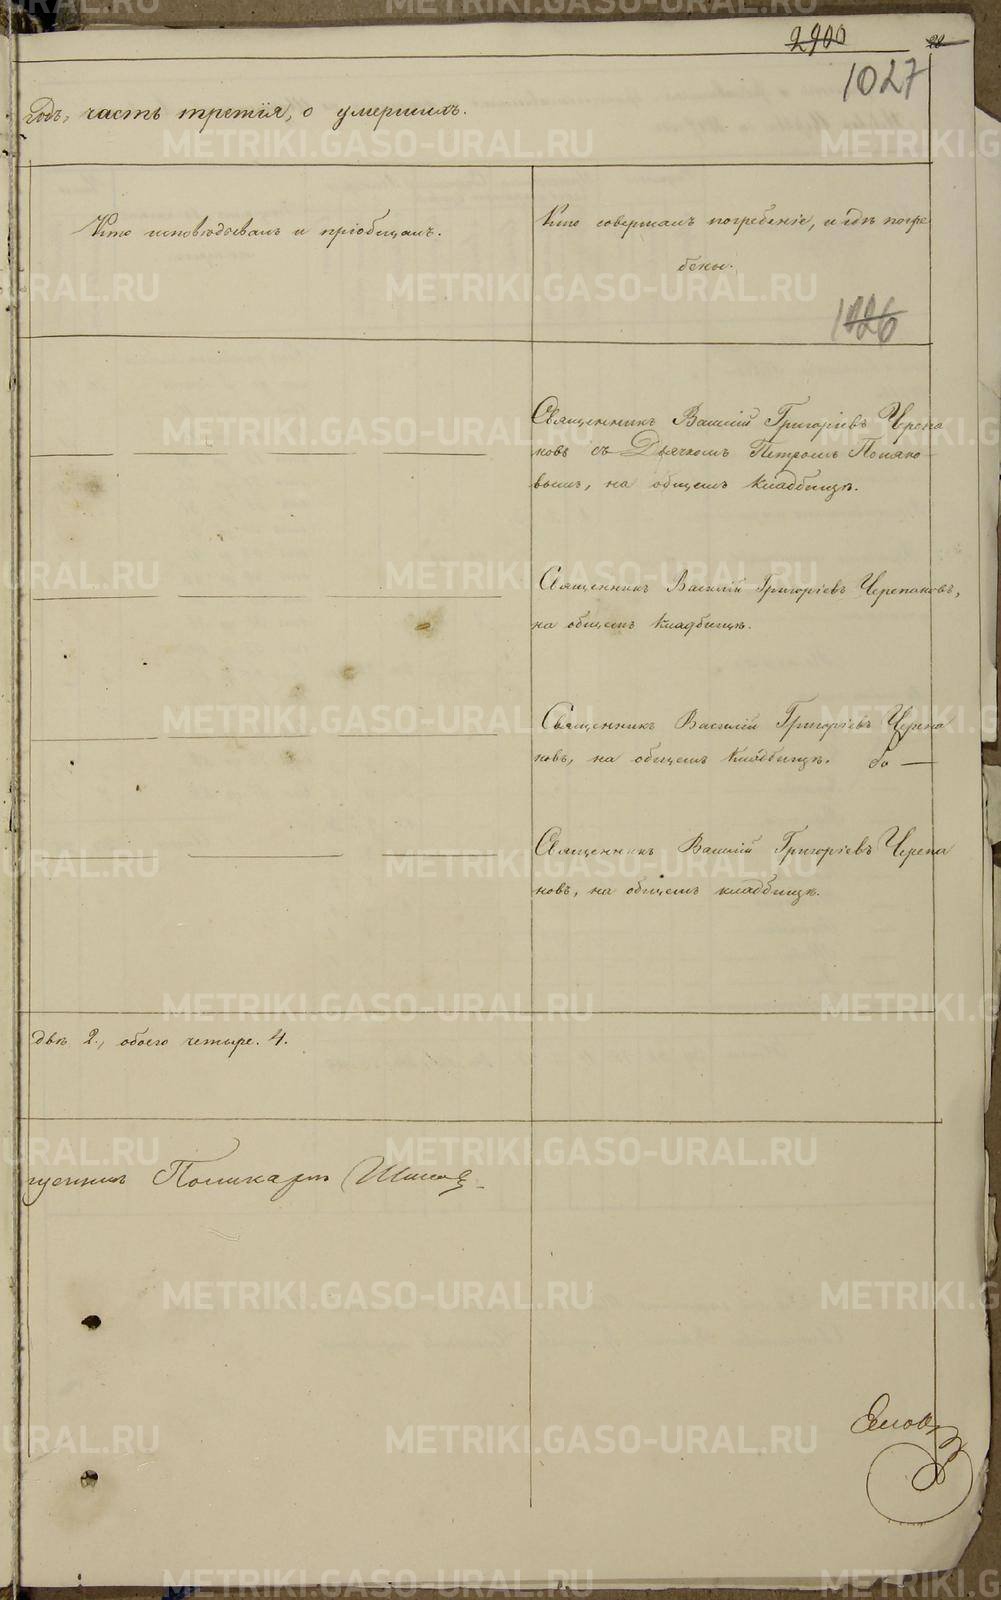 2900
28
1027
годъ, часть третія, о умершихъ.
Кто исповѣдывалъ и пріобщалъ.
Кто совершалъ погребеніе, и гдѣ погре
бены.
1026
Священникъ Василій Григоріевъ Черепа
новъ съ Дьячкомъ Петромъ Поляко
вымъ, на общемъ кладбищѣ.
Священникъ Василій Григорьевъ Черепановъ,
на общемъ кладбищѣ.
Священникъ Василій Григоріевъ Черепа
новъ, на общемъ кладбищѣ.
Священникъ Василій Григоріевъ Черепа
новъ, на общемъ кладбищѣ.
двѣ 2., обоего четыре. 4.
Поликарпъ
METRIKI.GASO-URAL.RU